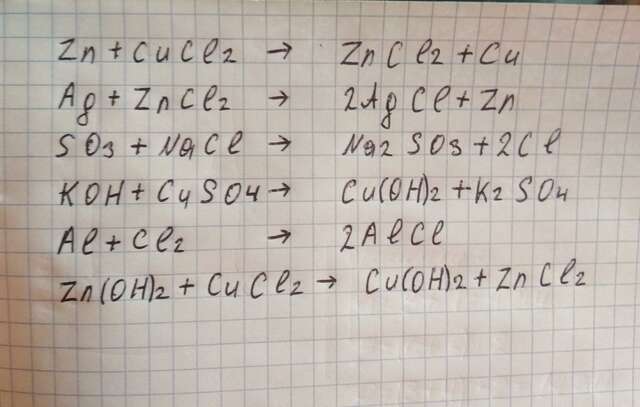 Zn + CuCl2 → ZnCl2 + Cu
Ag + ZnCl2 → 2AgCl + Zn
SO3 + NaCl → Na2SO3 + 2Cl
KOH + CuSO4 → Cu(OH)2 + K2SO4
Al + Cl2 → 2AlCl
Zn(OH)2 + CuCl2 → Cu(OH)2 + ZnCl2